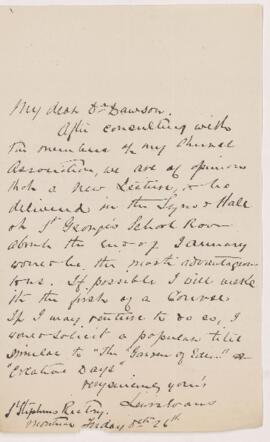 My dear Dr Dawson.
After consulting with
the members of my Church
Association, we are of opinion
that a New Lecture, to be
delivered in the Synod Hall
or St George's School Room
about the end of January
would be the most advantageous
tous. If possible I will make
it the first of a Course
If I may venture to do so, I
would solicit a popular title
similar to "The Garden of Eden" or
"Creative Days"
very sincerely yours
Lewis Evans
St Stephens Rectory.
Montreal Friday Dec 26th